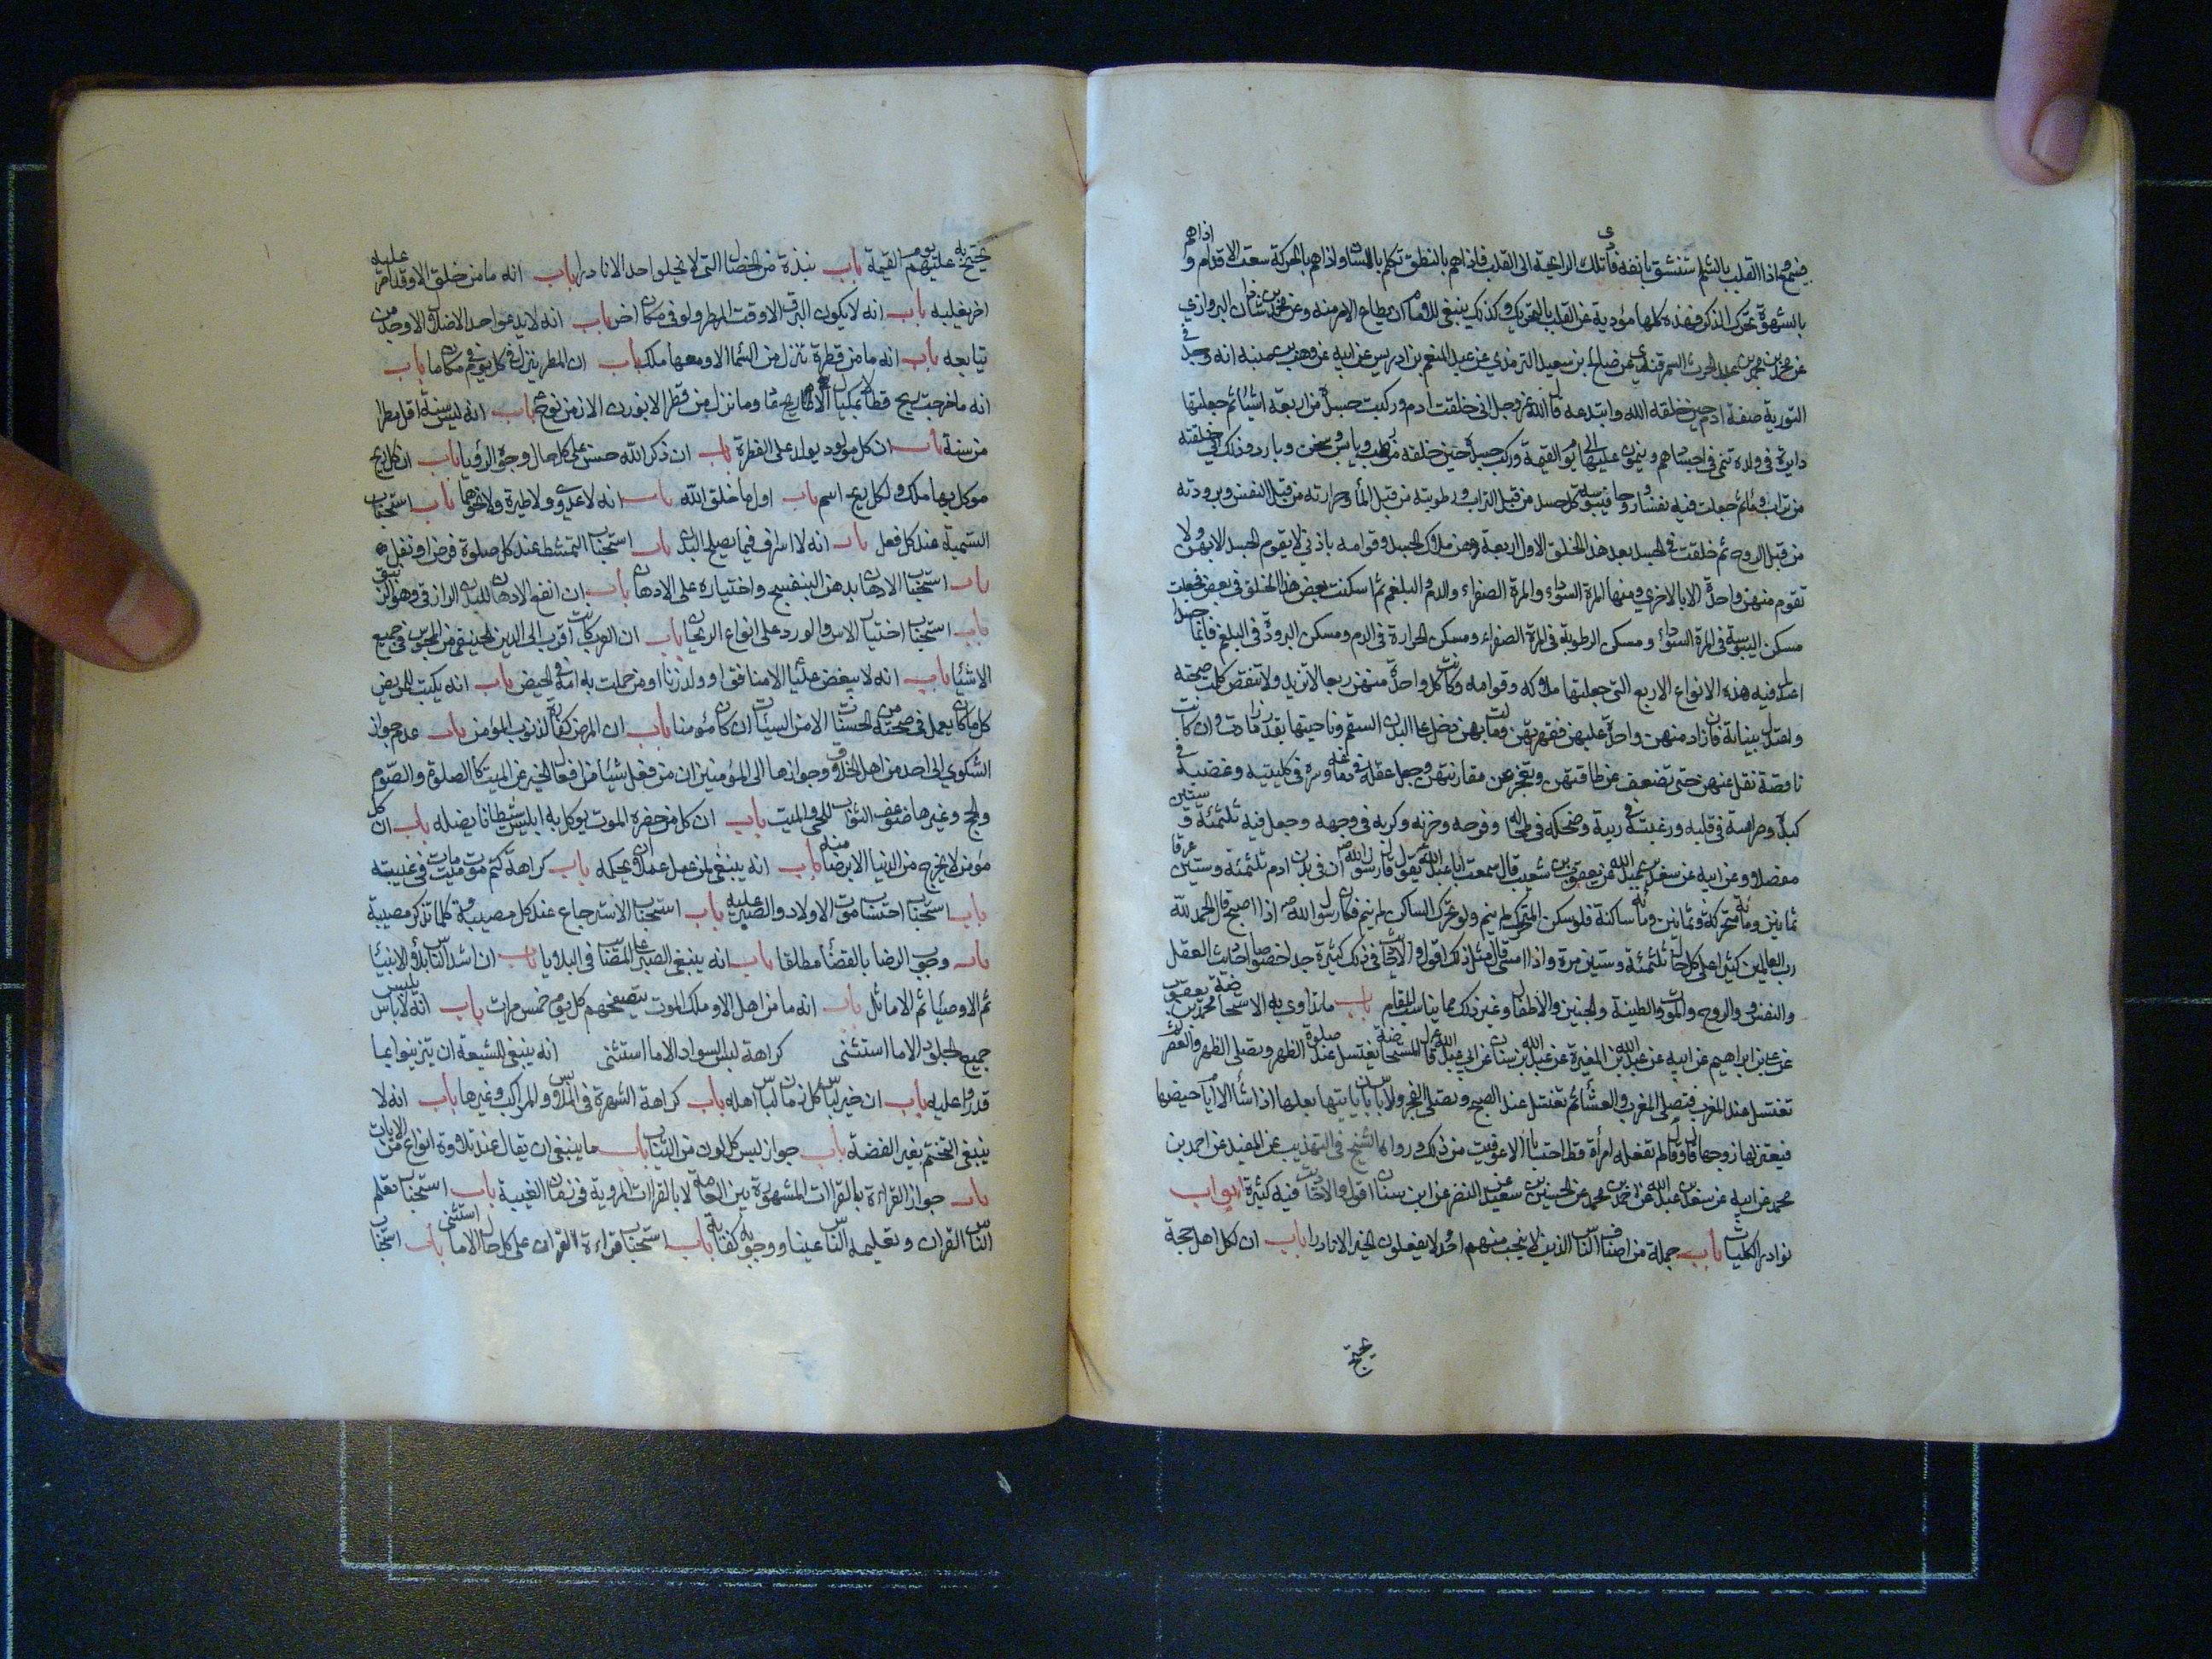 فيسمع واذا هم القلب بالشم استنشق بانفه فادى تلك الرايحة الى القلب فاذا هم بالنطق تكلم باللسان واذا هم بالحركة سعت الاقدام واذا هم
بالشهوة تحرك الذكر فهذه كلها مؤدية عن القلب بالتحريك وكذلك ينبغى للامام ان يطاع للامر منه وعن محمد بن شاذان البروازي
عن محمد بن محمد بن الحرث السمرقندي عن صالح بن سعيد الترمذي عن عبد المنعم بن ادريس عن ابيه عن وهب بن منبه انه وجد في
التورية صفة ادم حين خلقه الله وابتدعه قال الله عز وجل انى خلقت ادم وركبت جسده من اربعة اشياء ثم جعلتها
في ولده تنمى فى اجسادهم وينمون عليها الى يوم القيمة وركبت جسده حين خلقته من رطب ويابس وسخن وبارد وذلك انى خلقته
من تراب وماء ثم جعلت فيه نفسا وروحا فيبوسة كل جسد من قبل التراب ورطوبته من قبل الماء وحرارته من قبل النفس وبرودته
من قبل الروح ثم خلقت فى الجسد بعد هذه الخلق الاول اربعة وهن ملاك الجسد وقوامه باذنى لا يقوم الجسد الا بهن ولا
تقوم منهن واحدة الا بالاخرى ومنها المرة السوداء والمرة الصفراء والدم والبلغم ثم اسكنت بعض هذا الخلق فى بعض فجعلت
مسكن اليبوسة فى المرة السوداء ومسكن الرطوبة فى المرة الصفراء ومسكن الحرارة فى الدم ومسكن البرودة فى البلغم فايما جسد
اعتدلت فيه هذه الانواع الاربع التى جعلتها ملاكه وقوامه وكانت كل واحدة منهن ربعا لا تزيد ولا تنقص كملت صحته
واعتدل بنيانه فان زاد منهن واحدة عليهن فقهرتهن ومالت بهن دخل على البدن السقم من ناحيتها بقدر ما زادت وان كانت
ناقصة تقل عنهن حتى تضعف عن طاقتهن وتعجز عن مقارنتهن وجعل عقله فى دماغه وسره فى كليتيه وغضبه فى
كبده وصرامته فى قلبه ورغبته فى ريته وضحكه فى طحاله وفرحه وحزنه وكربه فى وجهه وجعل فيه ثلثمئة وستين
مفصلا وعن ابيه عن سعد بن عبد الله عن يعقوب بن شعيب قال سمعت ابا عبد الله يقول قال رسول الله ان فى بدن ادم ثلثمئة وستين عرقا
ثمانين ومائة متحركة وثمانين ومائة ساكنة فلو سكن المتحرك لم ينم ولو تحرك الساكن لم ينم فكان رسول الله اذا اصبح قال الحمد لله
رب العالمين كثيرا على كل حال ثلثمئة وستين مرة واذا امسى قال مثل ذلك اقول والاحاديث فى ذلك كثيرة جدا خصوصا احاديث العقل
والنفس والروح والموت والطينة والجنين والاطفال وغير ذلك مما يناسب المقام باب ما تداوى به الاستحاضة محمد بن يعقوب
عن على بن ابراهيم عن ابيه عن عبد الله بن المغيرة عن عبد الله بن سنان عن ابى عبد الله قال المستحاضة تغتسل عند صلوة الظهر وتصلى الظهر والعصر ثم
تغتسل عند المغرب فتصلى المغرب والعشاء ثم تغتسل عند الصبح وتصلى الفجر ولا باس بان ياتيها بعلها اذا شاء الا ايام حيضها
فيعتزلها زوجها قال وقال لم تفعله امرأة قط احتسابا الا عوفيت من ذلك ورواه الشيخ فى التهذيب عن المفيد عن احمد بن
محمد عن ابيه عن سعد بن عبد الله عن احمد بن محمد عن الحسين بن سعيد عن النضر عن ابن سنان اقول والاحاديث فيه كثيرة ابواب
نوادر الكليات باب جملة من اصناف الناس الذين لا ينجب منهم احد ولا يفعلون الخير الا نادرا باب ان لكل اهل حجة
يحتج
يحتج به عليهم يوم القيمة باب نبذة من الخصال التى لا يخلو احد الا نادرا باب انه ما من خلق الا وقد امر عليه
اخر يغلبه باب انه لا يكون البرق الا وقت المطر ولو فى مكان اخر باب انه لا يدعو احد الى ضلال الا وجد من
يتابعه باب انه ما من قطرة تنزل من السماء الا ومعها ملك باب ان المطر ينزل فى كل يوم فى مكان ما باب
انه ما خرجت ريح قط الا بمكيال الا وما نزل من قطر الا بوزن الا زمن نوح باب انه ليس سنة اقل مطرا
من سنة باب ان كل مولود يولد على الفطرة باب ان ذكر الله حسن على كل حال باب ان كل ريح
موكل بها ملك ولكل ريح اسم باب اول ما خلق الله باب انه لا عدوى ولا طيرة ولا نحوهما باب استحباب
التسمية عند كل فعل باب انه لا اسراف فيما يصلح البدن باب استحباب التمشط عند كل صلوة فرض او نفل
باب استحباب الادهان بدهن البنفسج واختياره على الادهان باب ان انفع الادهان للبدن الرازقى وهو الزنبق
باب استحباب اختيار الاس والورد على انواع الريحان باب ان العرب كانت اقرب الى الدين الحنيفى من المجوس فى جميع
الاشياء باب انه لا يبغض عليا الا منافق او ولد زنا او من حملت به امه فى الحيض باب انه يكتب للمريض
كل ما كان يعمل فى صحته من الحسنات الا من السيئات ان كان مؤمنا باب ان المرض كفارة لذنوب المؤمن باب عدم جواز
الشكوى الى احد من اهل الخلاف وجوازها الى المؤمنين ان من فعل شيئا من افعال الخير عن الميت كالصلوة والصوم
والحج وغيرها ضوعف الثواب للحى والميت باب ان كل من حضره الموت يوكل به ابليس شيطانا يضله باب ان كل
مؤمن لا يخرج من الدنيا الا برضا منه باب انه ينبغى لمن عمل عملا ان يحكمه باب كراهة كتم موت ميت مات فى غيبته
باب استحباب احتساب موت الاولاد والصبر عليه باب استحباب الاسترجاع عند كل مصيبة وكلما تذكر مصيبة
باب وجوب الرضا بالقضاء مطلقا باب انه ينبغى الصبر على المصائب والبلايا باب ان اشد الناس بلاء الانبياء
ثم الاوصياء ثم الاماثل باب انه ما من اهل الا وملك الموت يتصفحهم كل يوم خمس مرات باب انه لا باس بلبس
جميع الجلود الا ما استثنى كراهة لبس السواد الا ما استثنى انه ينبغى للشيعة ان يتزينوا بما
قدروا عليه باب ان خير لباس كل زمان لباس اهله باب كراهة الشهرة فى الملابس والمراكب وغيرها باب انه لا
ينبغى التختم بغير الفضة باب جواز لبس كل لون من الثياب باب ما ينبغى ان يقال عند تلاوة انواع من الايات
باب جواز القراءة بالقراات المشهورة بين العامة لا بالقراات المروية فى زمان الغيبة باب استحباب تعلم
الناس القران وتعليمه الناس عينا ووجوبه كفاية باب استحباب قراءة القران على كل حال الا ما استثنى باب استحباب